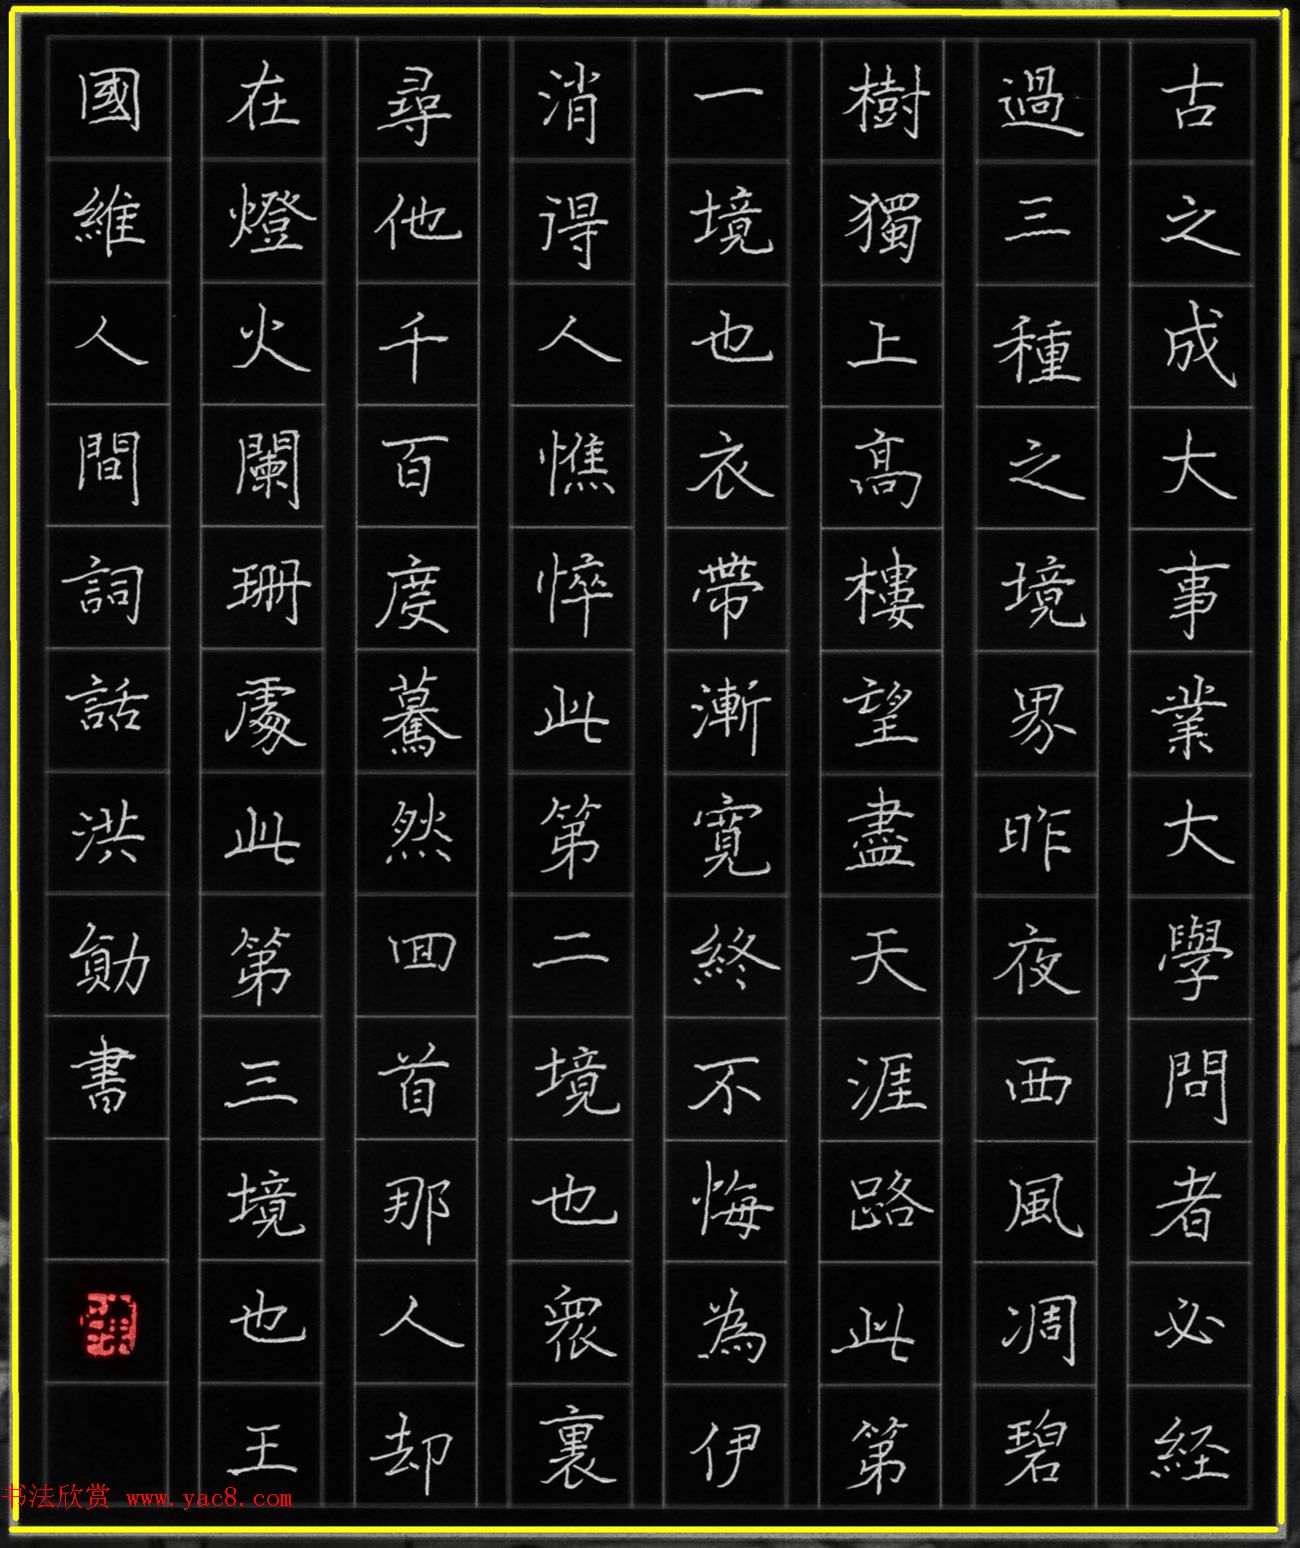 古之成大事業大學問者必経
過三種之境界昨夜西風凋碧
樹獨上高樓望盡天涯路此第
一境也衣帶漸寛終不悔為伊
消得人憔悴此第二境也衆裏
尋他千百度驀然回首那人却
在燈火闌珊處此第三境也王
國維人間詞話洪勛書
书法欣赏 www.yac8.com